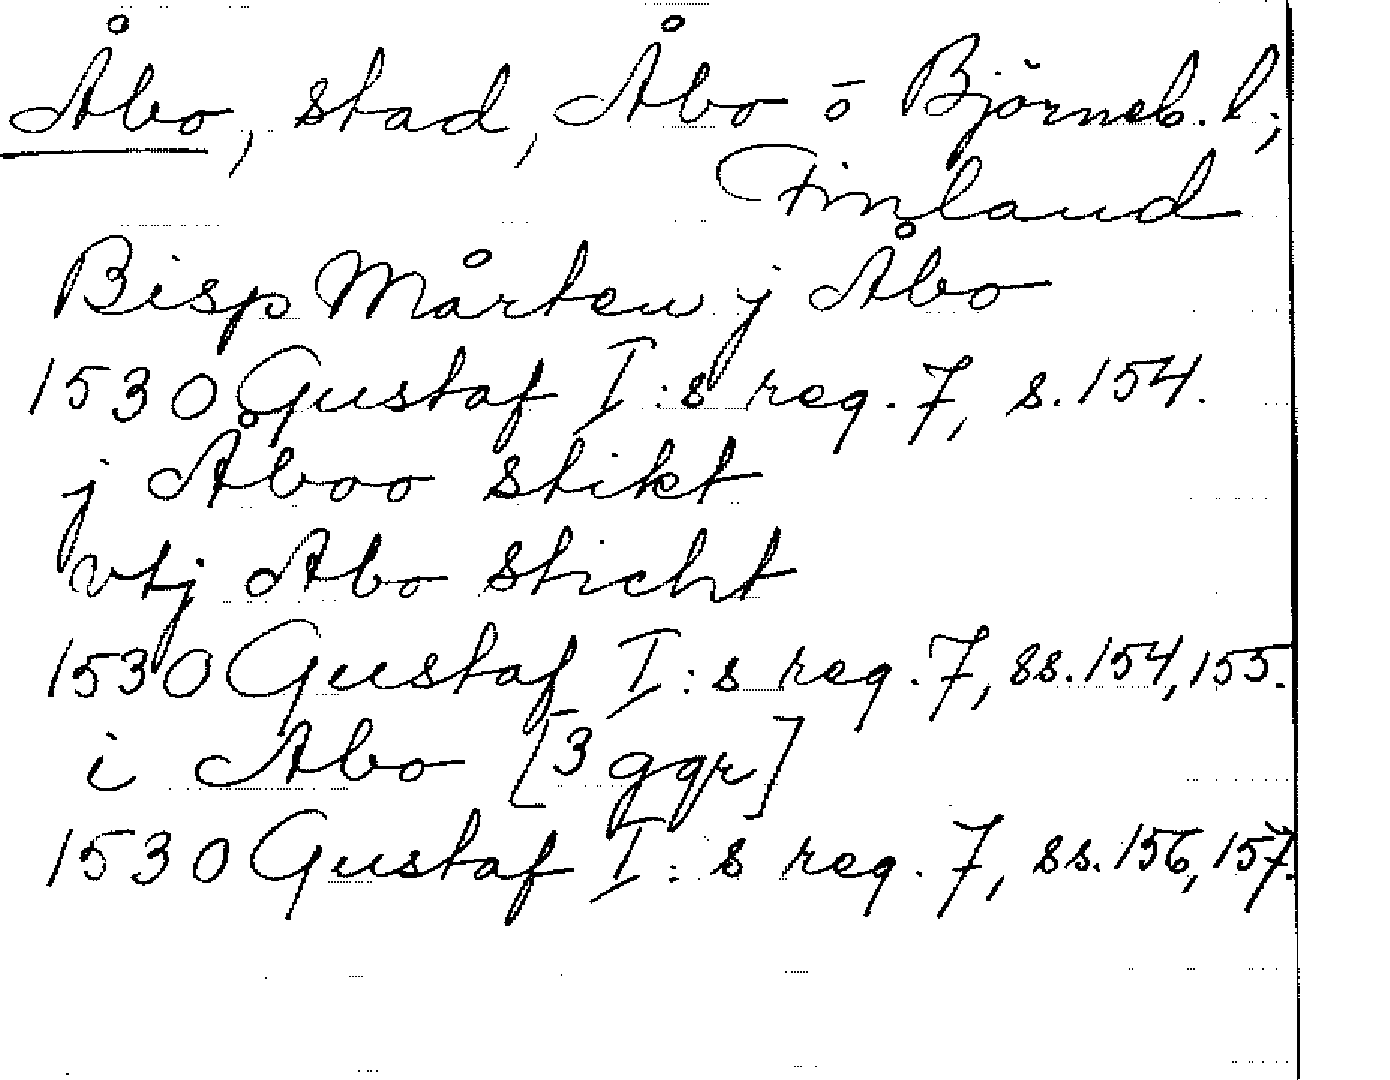 Åbo, stad, Åbo o Björneb. l;
Finland
Bisp Mårten j Åbo
1530 Gustaf I:s reg. 7, s. 154.
j Åboo stikt
vtj Abo sticht
1530 Gustaf I:s reg. 7, ss. 154, 155.
i Abo [3 ggr]
1530 Gustaf I:s reg. 7, ss. 156, 157.